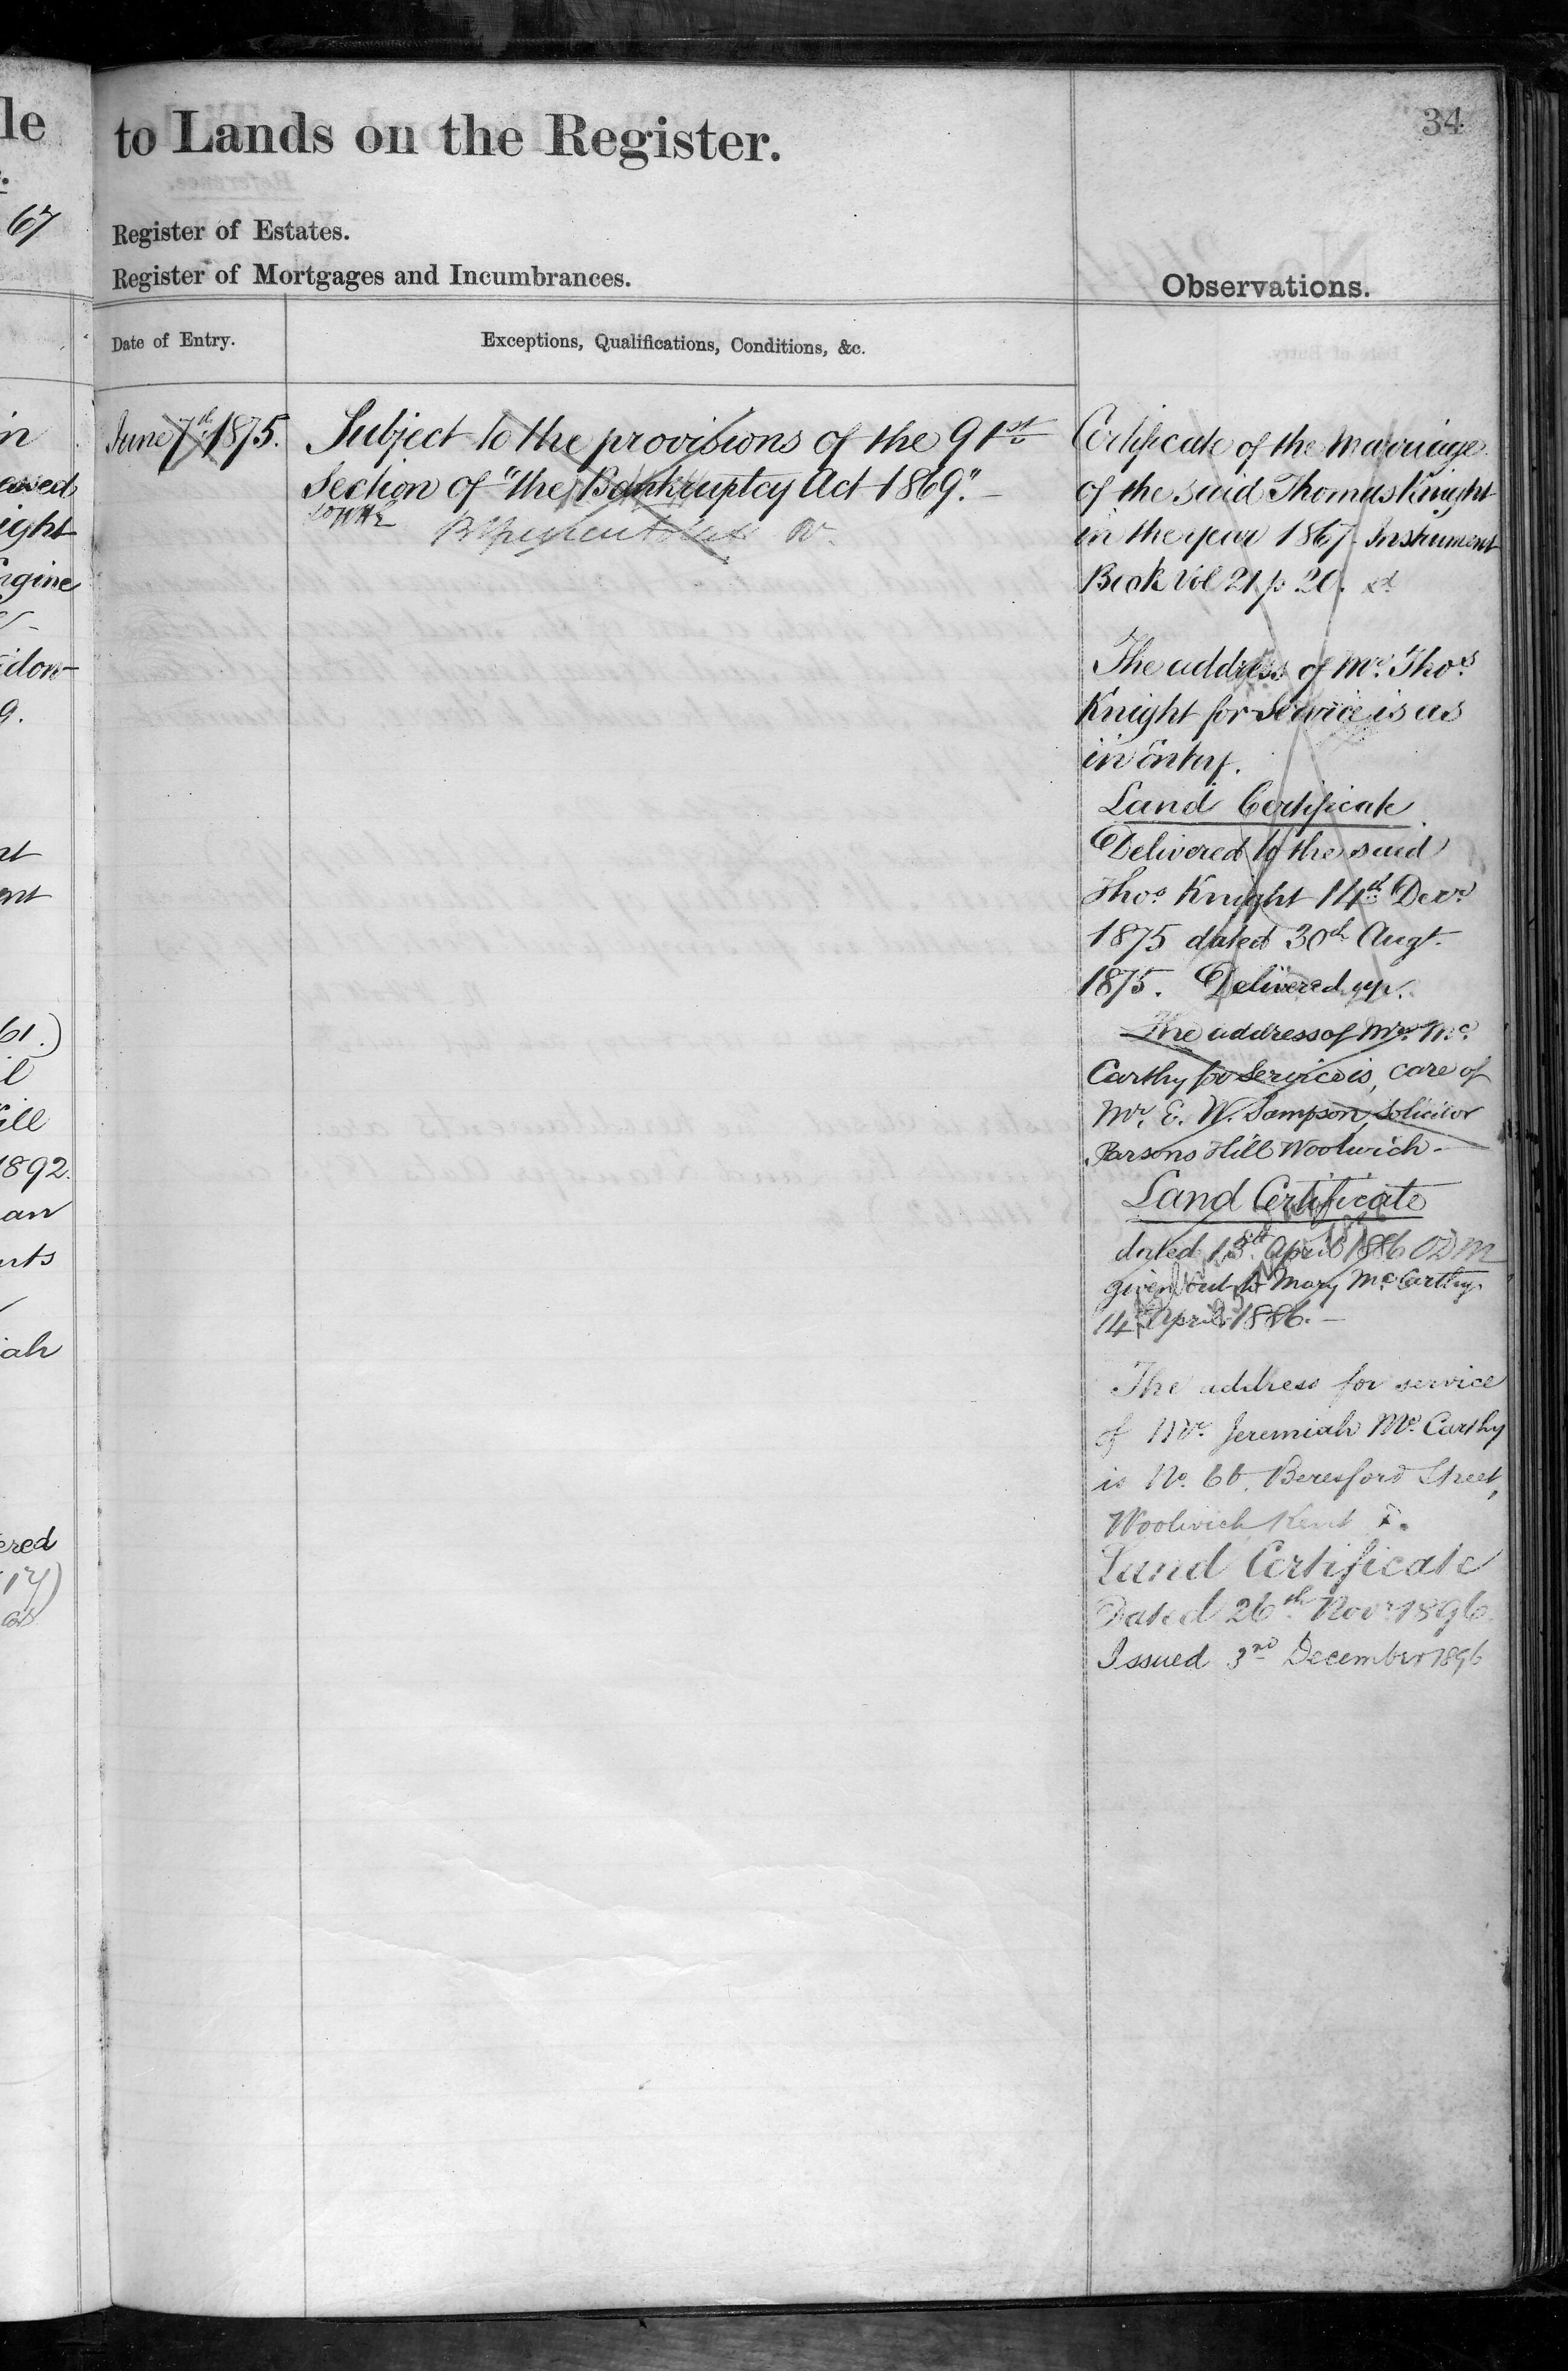 le
67
in
eased
ight
Engine
idon-
9.
nt
ent
61.)
il
ill
1892.
an
nts
iah
ered
17)
34
to Lands on the Register.
Register of Estates.
Register of Mortgages and Incumbrances.
Observations.
Date of Entry.
Exceptions, Qualifications, Conditions, &c.
June 7th 1875.
Subject to the provisions of the 91st
Section of "the Bankruptcy Act 1869."
Certificate of the Marriage
of the said Thomas Knight
in the year 1867. Instrument
Book Vol 21 p 20.
The address of Mr. Thos
Knight for Service is as
in Entry.
Land Certificate
Delivered to the said
Thos Knight 14th Decr
1875 dated 30th Augt.
1875. Delivered up.
The address of Mrs. Mc
Carthy for Service is, care of
Mr. E. W. Sampson, Solicitor
Parsons Hill Woolwich -
Land Certificate
dated 13th April 1886
given out to Mary McCarthy
14 April 1886. -
The address for service
of Mr. Jeremiah Mc Carthy
is No. 66, Beresford Street,
Woolwich Kent
Land Certificate
Dated 26th Novr 1896
Issued 3rd December 1896